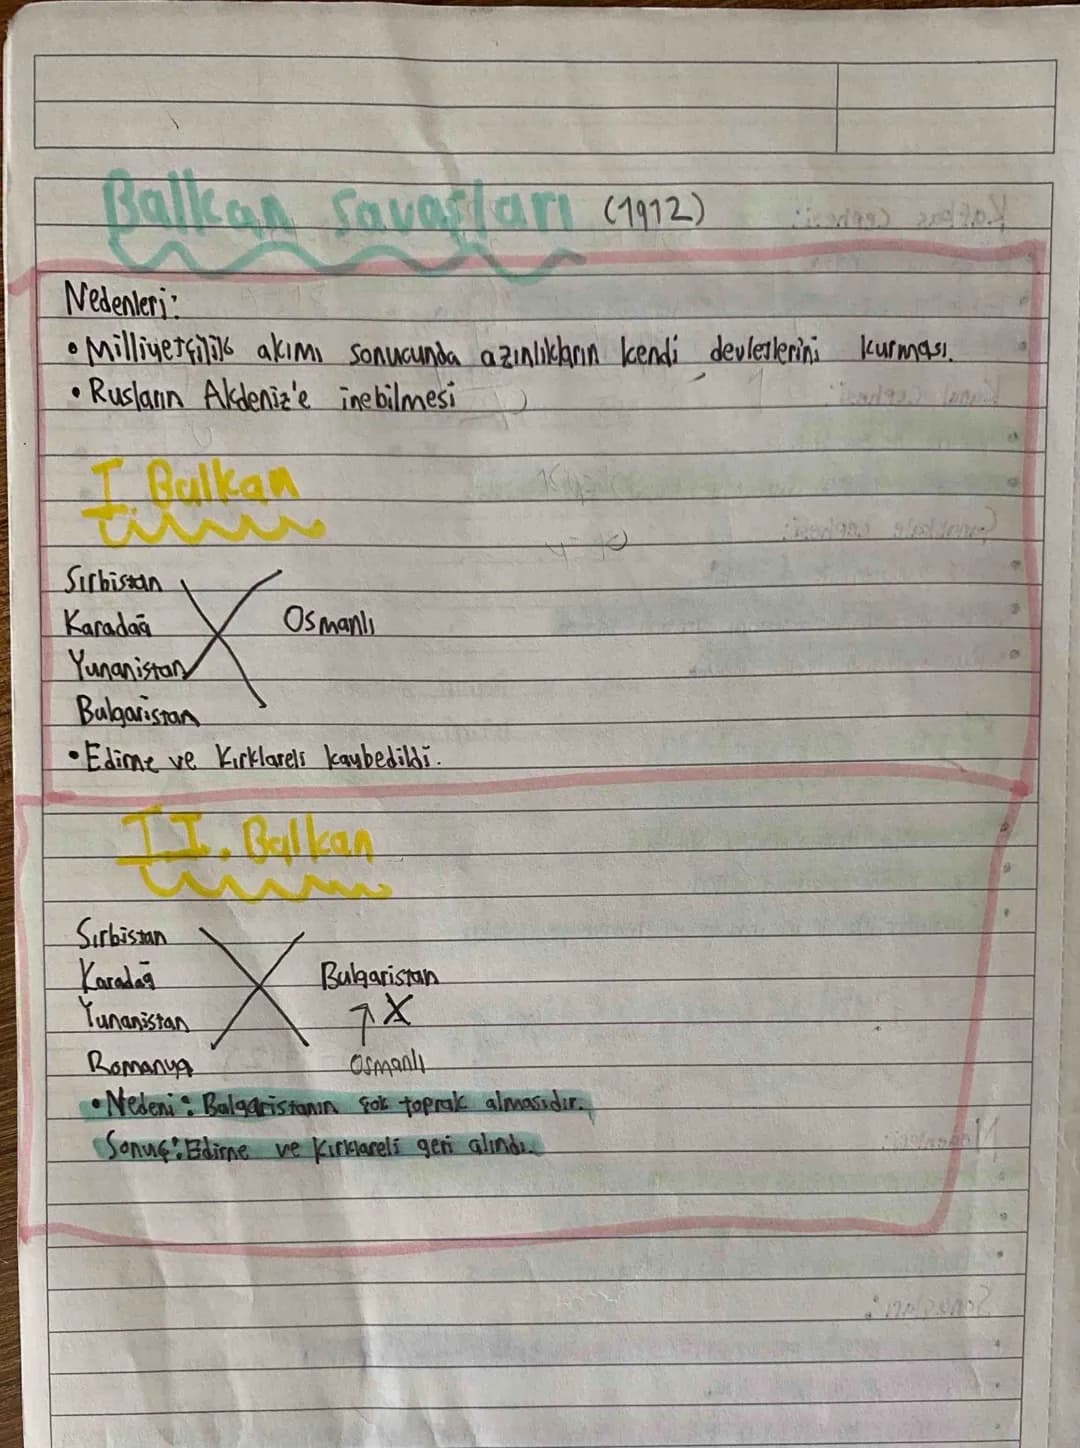 Balkan savaşları (1912)
Nedenleri:
• Milliyetçilik akımı sonucunda azınlıkların kendi devletlerini kurması.
• Rusların Akdeniz'e inebilmesi
I. Balkan
Sırbistan
Karadağ Osmanlı
Yunanistan
Bulgaristan
• Edirne ve Kırklareli kaybedildi.
II. Balkan
Sırbistan
Karadağ Bulgaristan
Yunanistan
Romanya Osmanlı
• Nedeni: Bulgaristanın çok toprak almasıdır.
Sonuç: Edirne ve Kırklareli geri alındı.